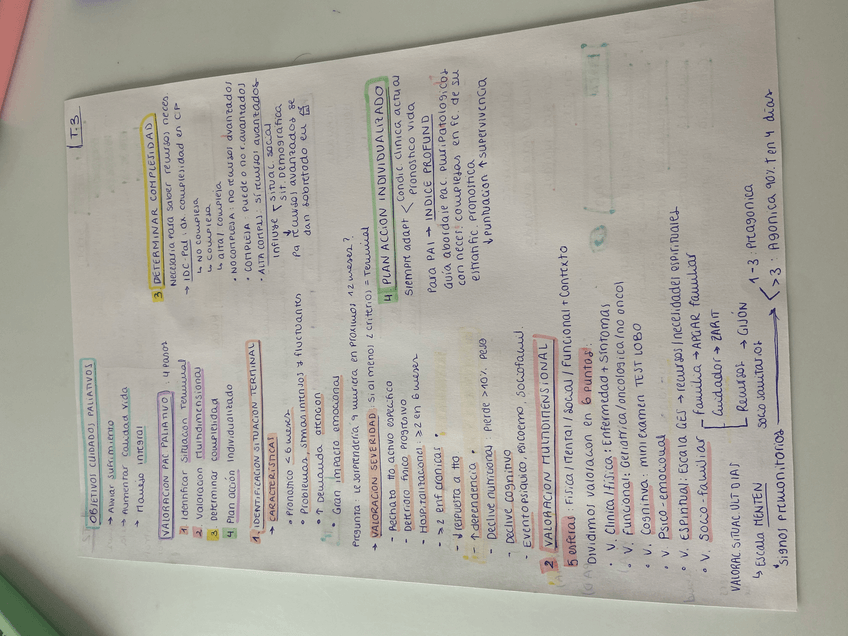 T.3
OBJETIVOS CUIDADOS PALIATIVOS
→ Aliviar sufrimiento
→ Aumentar calidad vida
→ Manejo integral
VALORACIÓN PAC PALIATIVO: 4 pasos
1 Identificar situación terminal
2 Valoración multidimensional
3 Determinar complejidad
4 Plan acción individualizado
1. IDENTIFICACIÓN SITUACIÓN TERMINAL
→ CARACTERÍSTICAS
• Pronostico < 6 meses
• Problemas, stmas intensos y fluctuantes
• ↑ Demanda atención
• Gran impacto emocional
Pregunta: ¿e sorprendería q muriera en próximos 12 meses?
→ VALORACIÓN SEVERIDAD: Si al menos 2 criterios = Terminal
- Rechazo tto activo específico
- Deterioro físico progresivo
- Hospitalizaciones: ≥2 en 6 meses
- ≥2 enf cronicas
- ↓ respuesta a tto
- ↑ dependencia
- Declive nutricional: Pierde >10% peso
- Declive cognitivo
- Evento psiquico, psicoemo, sociofamil.
2 VALORACIÓN MULTIDIMENSIONAL
5 esferas: Física/Mental/Social/Funcional + Contexto
Dividimos valoracion en 6 puntos:
• V. Clínica/física: Enfermedad + Síntomas
• V. Funcional: Geriatrica/oncológica/no oncol
• V. Cognitiva: mini examen TEST LOBO
• V. Psico-emocional
• V. Espiritual: Escala GES → recursos/necesidades espirituales
• V. Socio-familiar
Familia → APGAR familiar
Cuidador → ZARIT
Recursos sociosanitarios → GIJÓN
VALORAC SITUAC ULT DIAS
↳ Escala MENTEN
*Signos premonitorios
1-3: Preagónica
>3: Agónica 90% † en 4 días
3 DETERMINAR COMPLEJIDAD
Necesaria para saber recursos neces.
→ IDC-Pal: dx complejidad en CP
↳ No compleja
↳ Compleja
↳ altam compleja
• No compleja: no recursos avanzados
• Compleja: puede o no r. avanzados
• Alta compl: sí recursos avanzados
Influye
situac social
sit demográfica
↓
Pq recursos avanzados se
dan sobretodo en
4 PLAN ACCIÓN INDIVIDUALIZADO
Siempre adapt
Condic clínica actual
Pronostico vida
Para PAI → INDICE PROFUND
Guía abordaje pac pluripatologicos
con neces. complejas en fc. de su
estratific pronostica
↓ puntuacion ↑ supervivencia